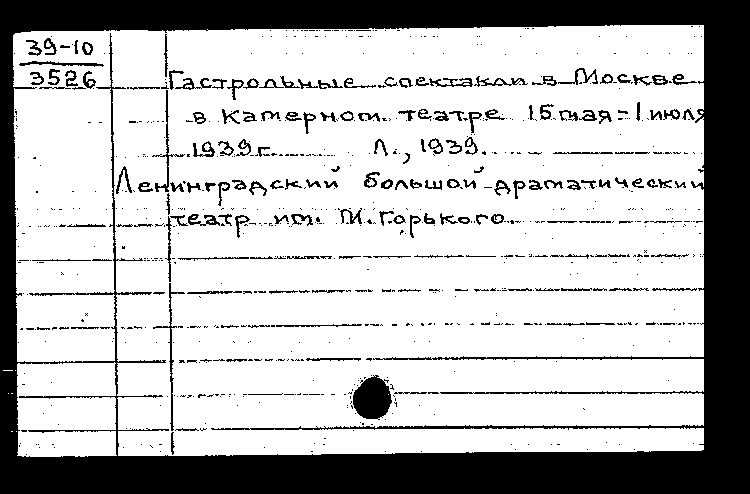 39-10
3526
Гастрольные спектакли в Москве
в Камерном театре 15 мая - 1 июля
1939 г. Л., 1939.
Ленинградский большой драматический
театр им. М. Горького.